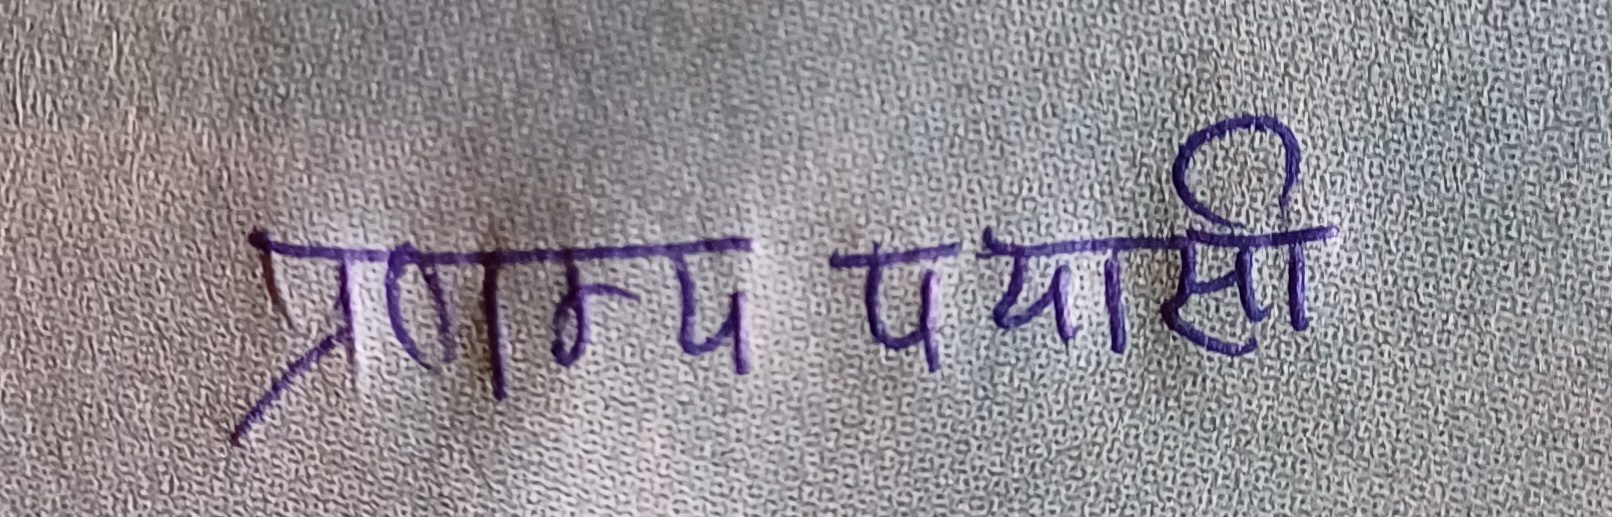 प्रणम्य पयासी